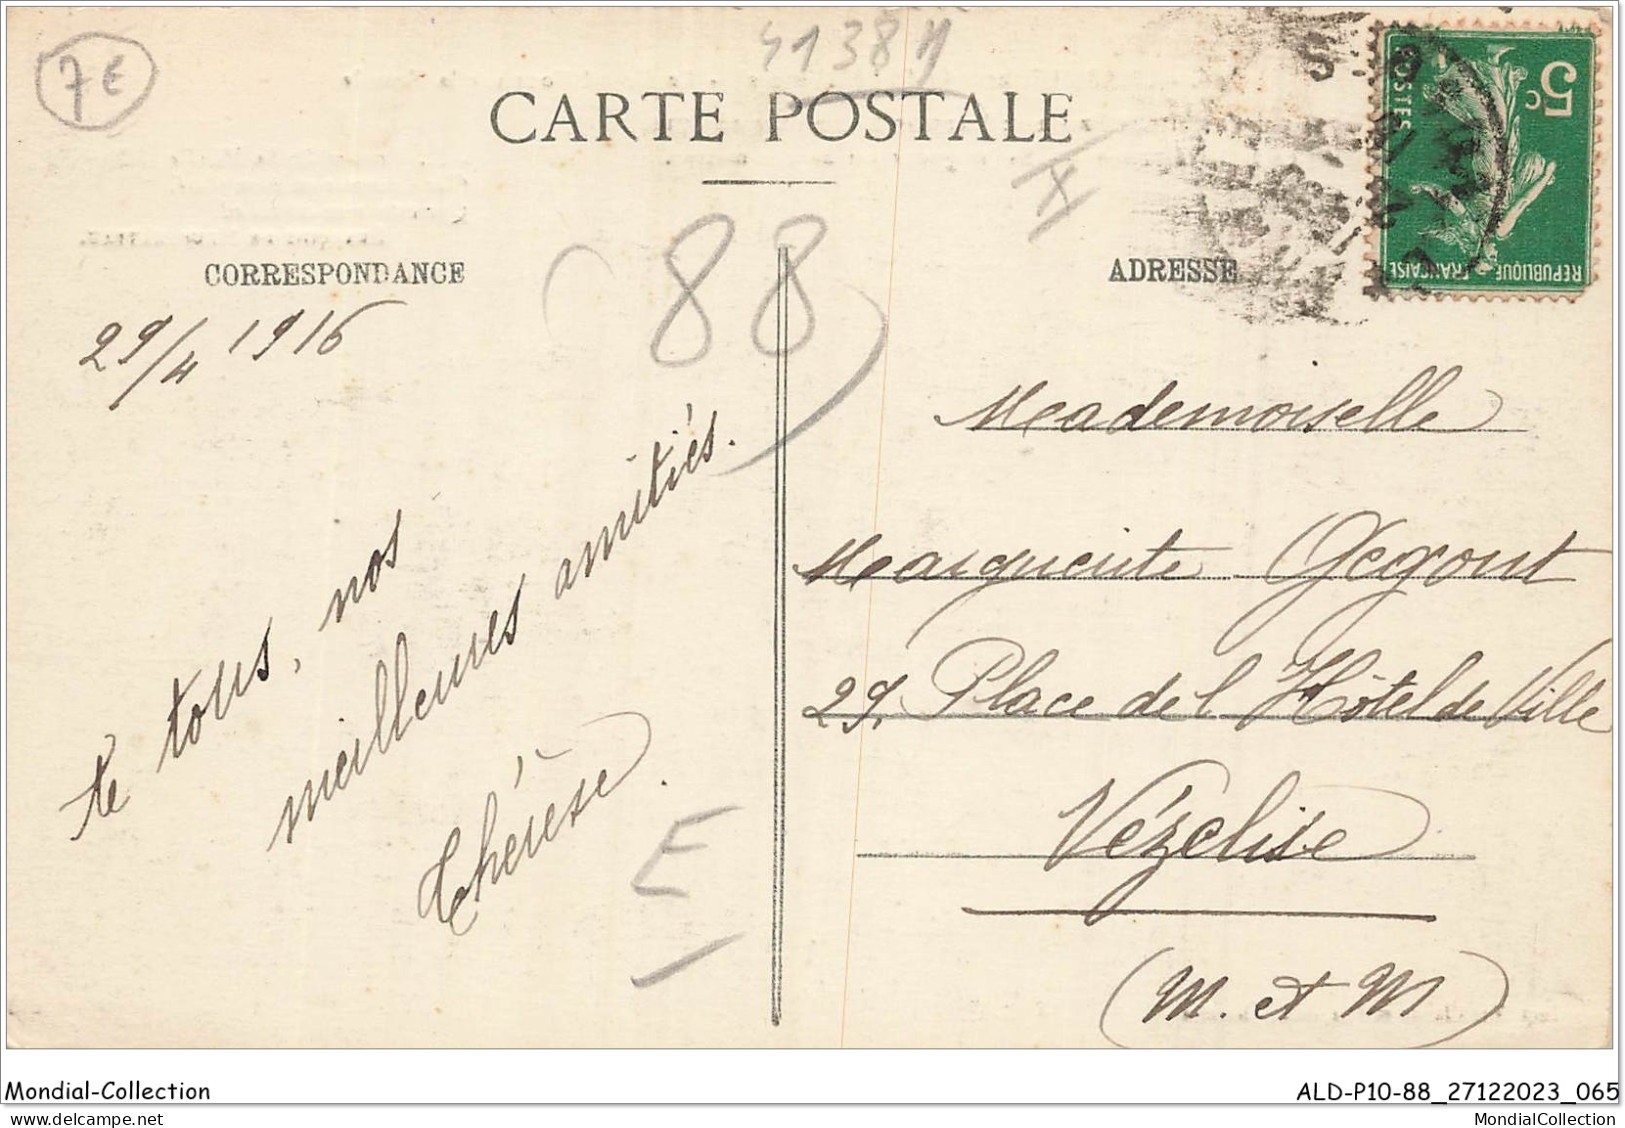 7€
4138 N
CARTE POSTALE
X
(88)
CORRESPONDANCE
ADRESSE
5c
POSTES
REPUBLIQUE
FRANÇAISE
29/4 1916
te tous, nos
meilleures amitiés.
Thérèse.
E
Mademoiselle
Marguerite Gegout
29, Place de l Hôtel de Ville
Vézelise
(M. et M)
Mondial-Collection
ALD-P10-88_27122023_065
MondialCollection